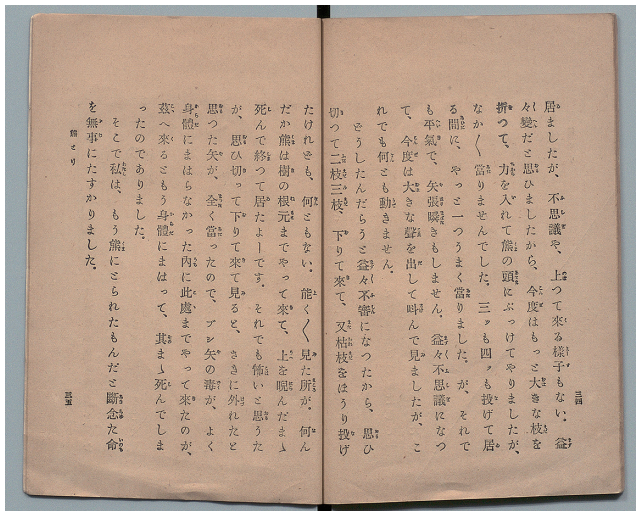 居ましたが、不思議や、上つて來る樣子もない。益
々變だと思ひましたから、今度はもつと大きな枝を
折つて、力を入れて熊の頭にぶつけてやりましたが、
なか〳〵當りませんでした。三ツも四ツも投げて居
る間に、やつと一つうまく當りました。が、それで
も平氣で、矢張瞬きもしません。益々不思議になつ
て、今度は大きな聲を出して叫んで見ましたが、こ
れでも何とも動きません。
どうしたんだらうと益々不審になつたから、思ひ
切つて二枝三枝、下りて來て、又枯枝をはうり投げ
三四
たけれども、何ともない。能く〳〵見た所が、何ん
だか熊は樹の根元までやつて來て、上を睨んだまゝ
死んで終つて居たよーです。それでも怖いと思うた
が、思ひ切つて下りて來て見ると、さきに外れたと
思つた矢が、全く當つたので、ブシ矢の毒が、よく
身體にまはらなかつた內に此處までやつて來たのが、
玆へ來るともう身體にまはつて、其まゝ死んでしま
つたのでありました。
そこで私は、もう熊にとられたもんだと斷念た命
を無事にたすかりました。
熊とり
三五